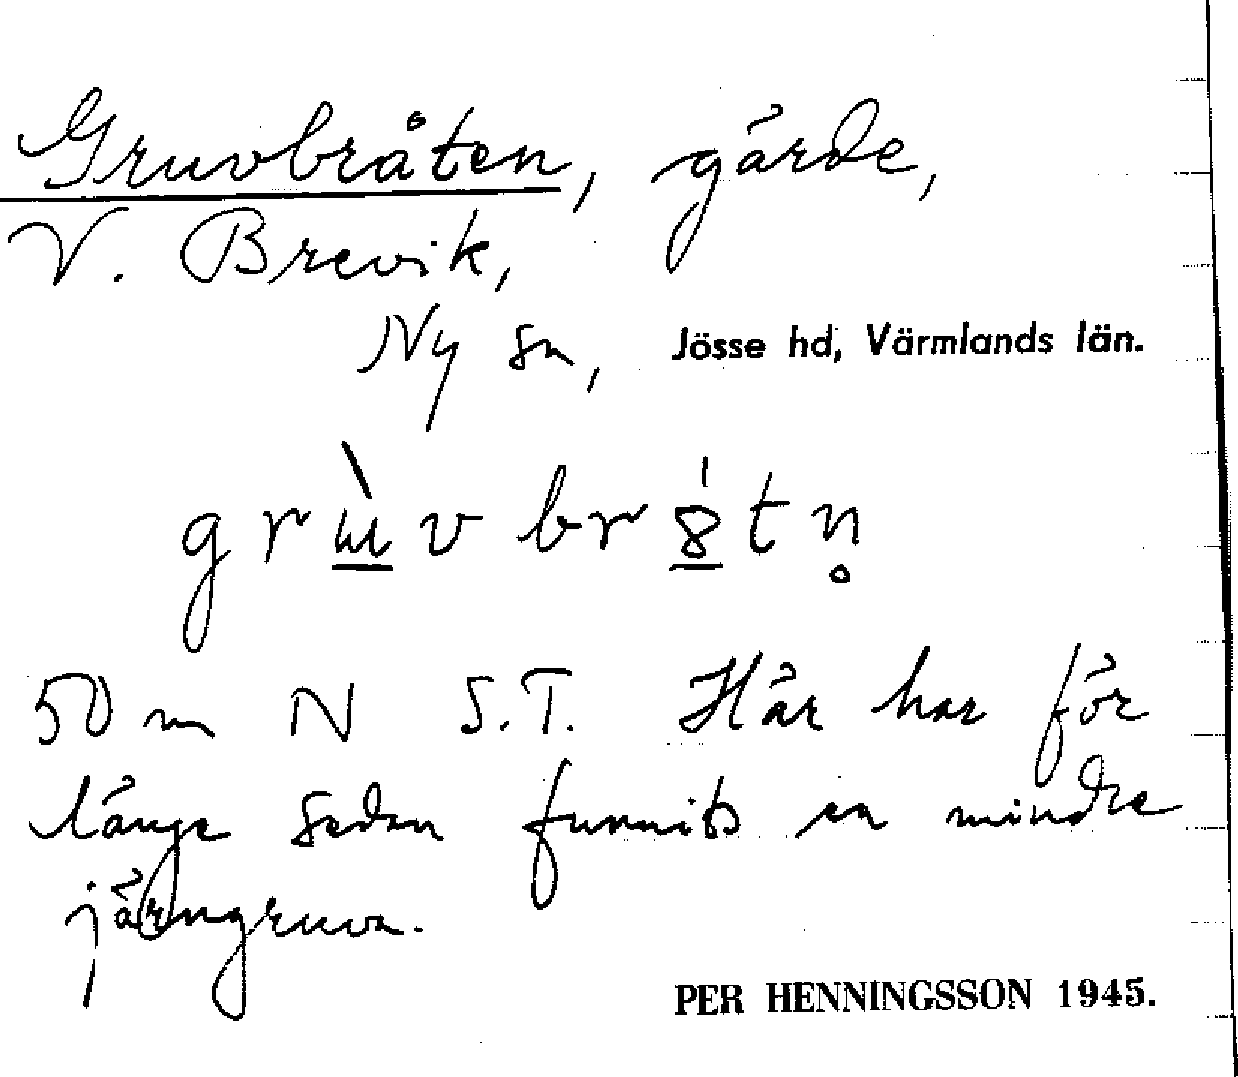 Gruvbråten, gärde,
V. Brevik,
Ny sn, Jösse hd, Värmlands län.
grɯ̲̀v br8̲́tn̥
50 m N S.T. Här har för
länge sedan funnits en mindre
järngruva.
PER HENNINGSSON 1945.